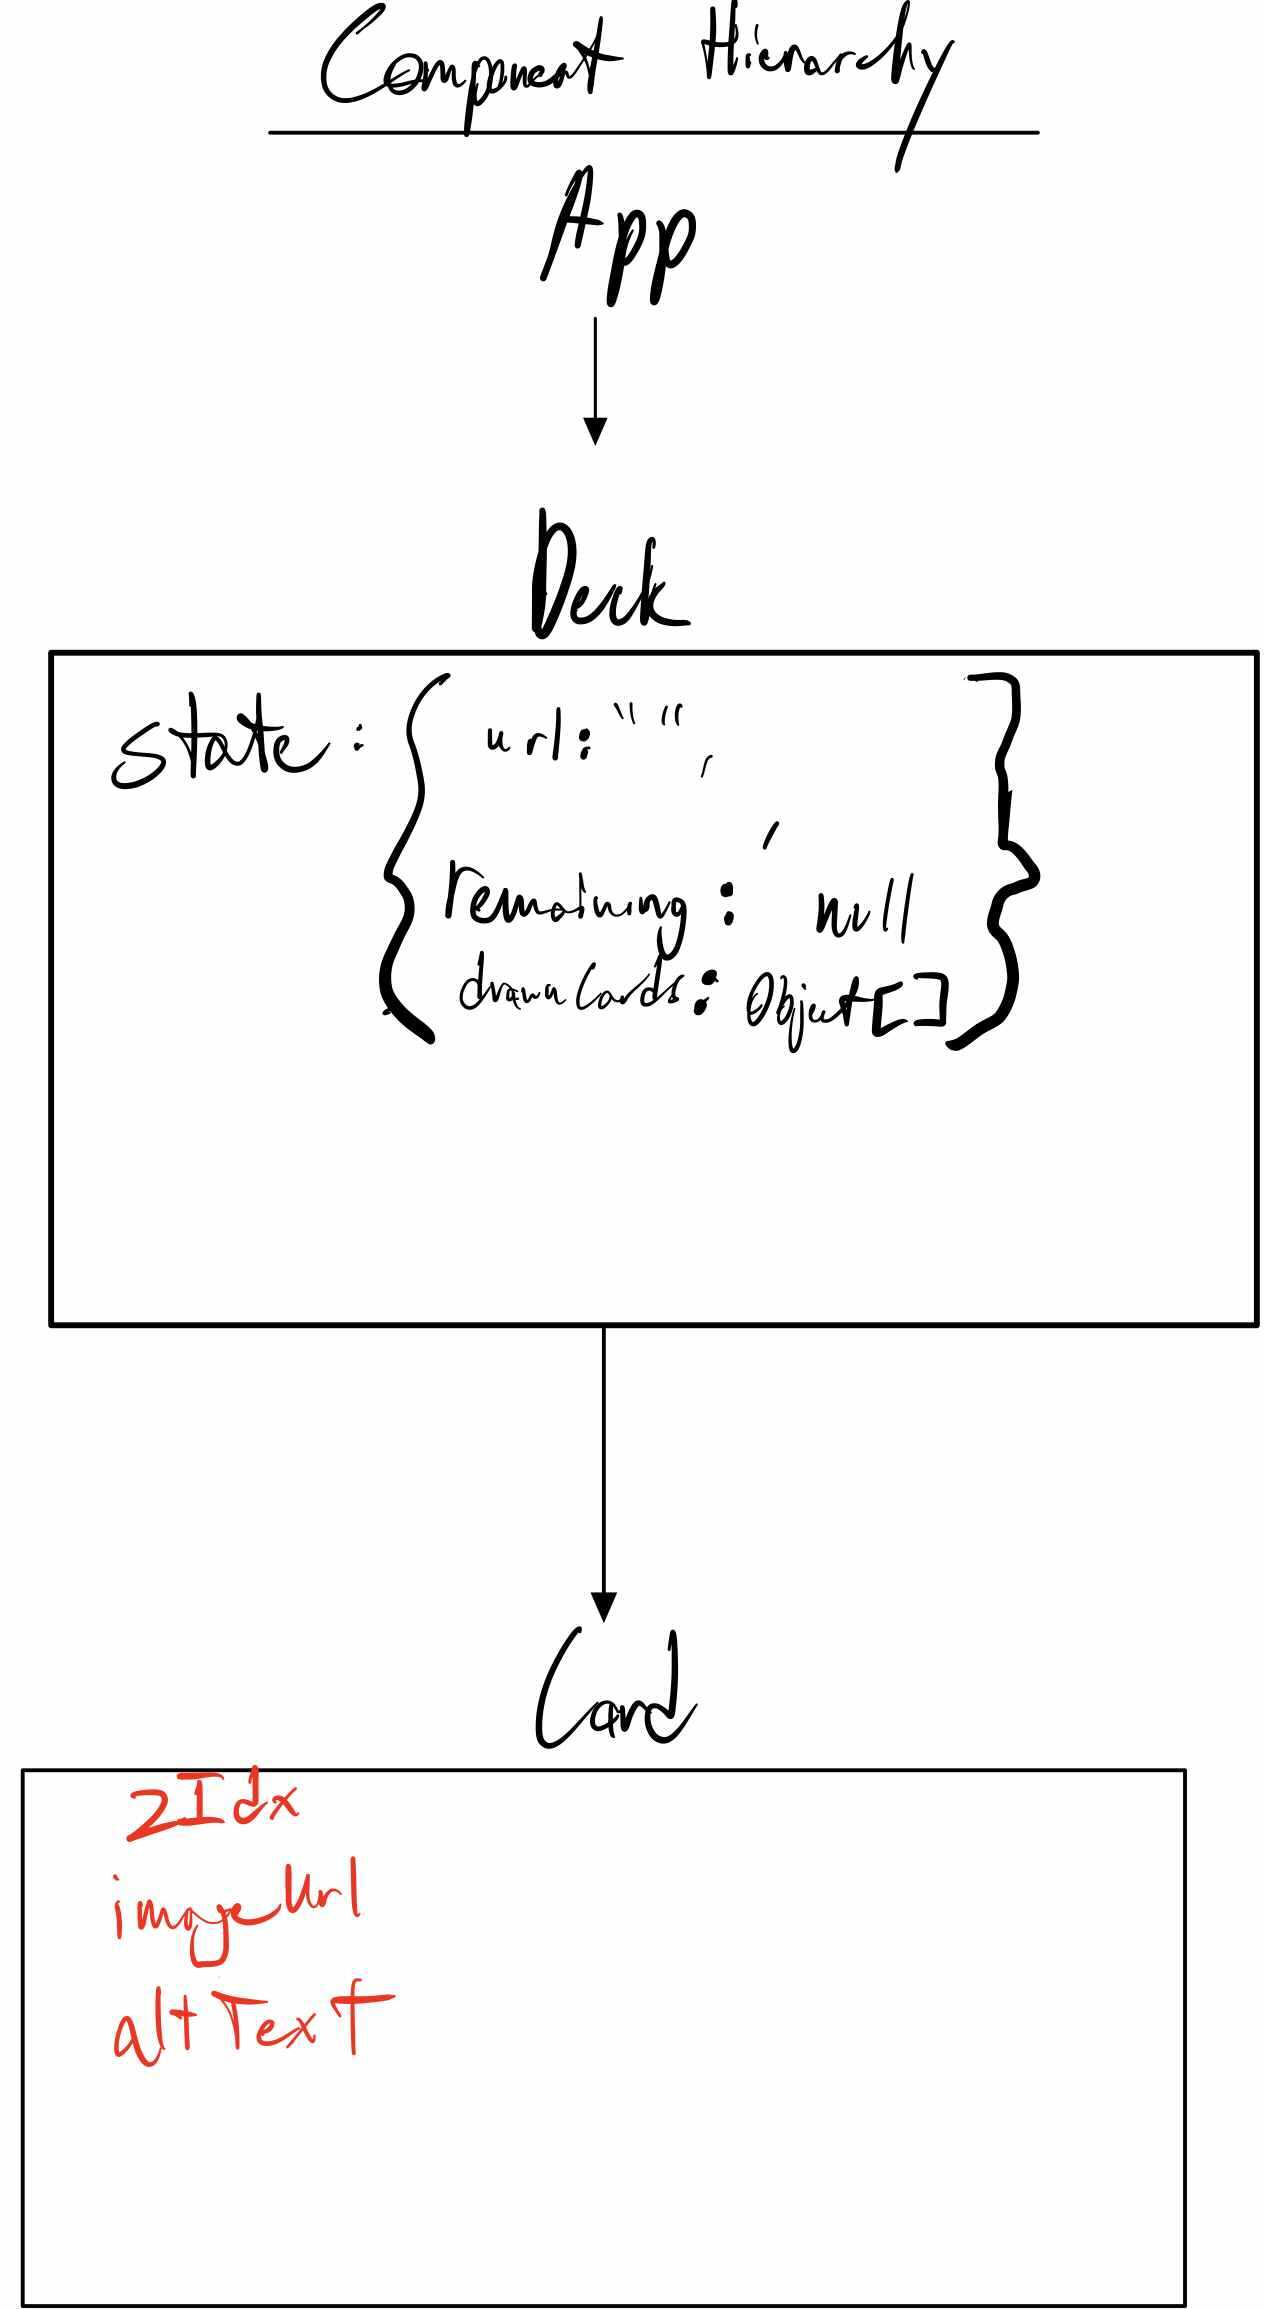 Component Hierarchy
App
Deck
state: { url: "",
,
remaining: null
drawnCards: Object[] }
Card
zIdx
imageUrl
altText